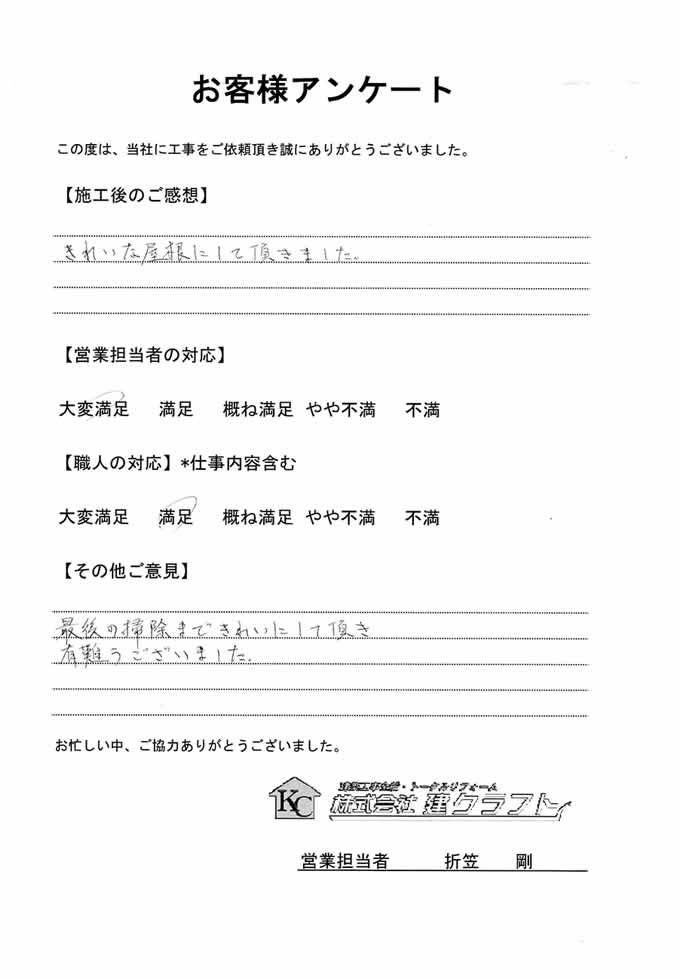 お客様アンケート
この度は、当社に工事をご依頼頂き誠にありがとうございました。
【施工後のご感想】
きれいな屋根にして頂きました。
【営業担当者の対応】
大変満足 満足 概ね満足 やや不満 不満
【職人の対応】*仕事内容含む
大変満足 満足 概ね満足 やや不満 不満
【その他ご意見】
最後の掃除まできれいにして頂き
有難うございました.
お忙しい中、ご協力ありがとうございました。
KC
・トータルリフォーム
株式会社 建クラフト
営業担当者 折笠 剛